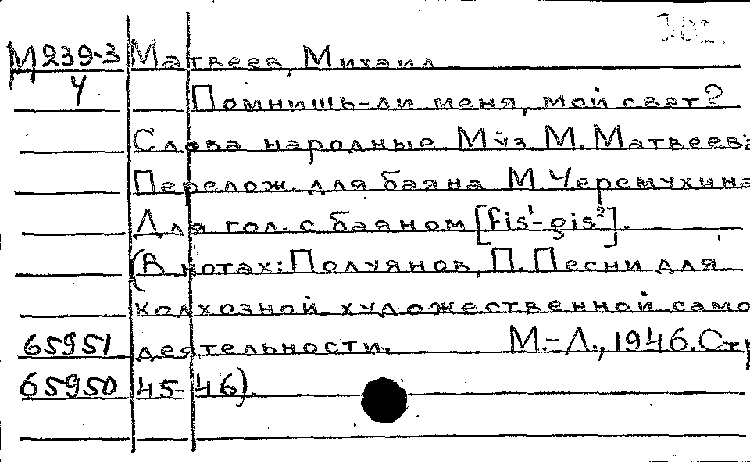 М239-3 Матвеев, Михаил
У Помнишь-ли меня, мой свет?
Слова народные Муз. М. Матвеева.
Перелож. для баяна М. Черемухина
Для гол. с баяном [fis¹-gis²].
(В нотах: Полуянов, П. Песни для
колхозной художественной само
65951 деятельности. М.-Л., 1946. Стр
65950 45-46).